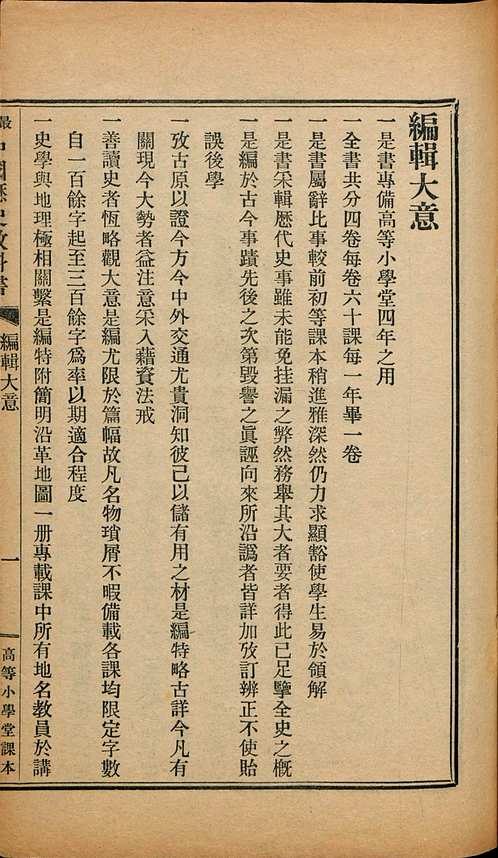 編輯大意
一是書專備高等小學堂四年之用
一全書共分四卷每卷六十課每一年畢一卷
一是書屬辭比事較前初等課本稍進雅深然仍力求顯豁使學生易於領解
一是書采輯歷代史事雖未能免挂漏之弊然務舉其大者要者得此已足擥全史之槪
一是編於古今事蹟先後之次第毀譽之眞誣向來所沿譌者皆詳加攷訂辨正不使貽
誤後學
一攷古原以證今方今中外交通尤貴洞知彼己以儲有用之材是編特略古詳今凡有
關現今大勢者益注意采入藉資法戒
一善讀史者恆略觀大意是編尤限於篇幅故凡名物瑣屑不暇備載各課均限定字數
自一百餘字起至三百餘字爲率以期適合程度
一史學與地理極相關繫是編特附簡明沿革地圖一册專載課中所有地名敎員於講
最 中國歷史敎科書 編輯大意 一 高等小學堂課本